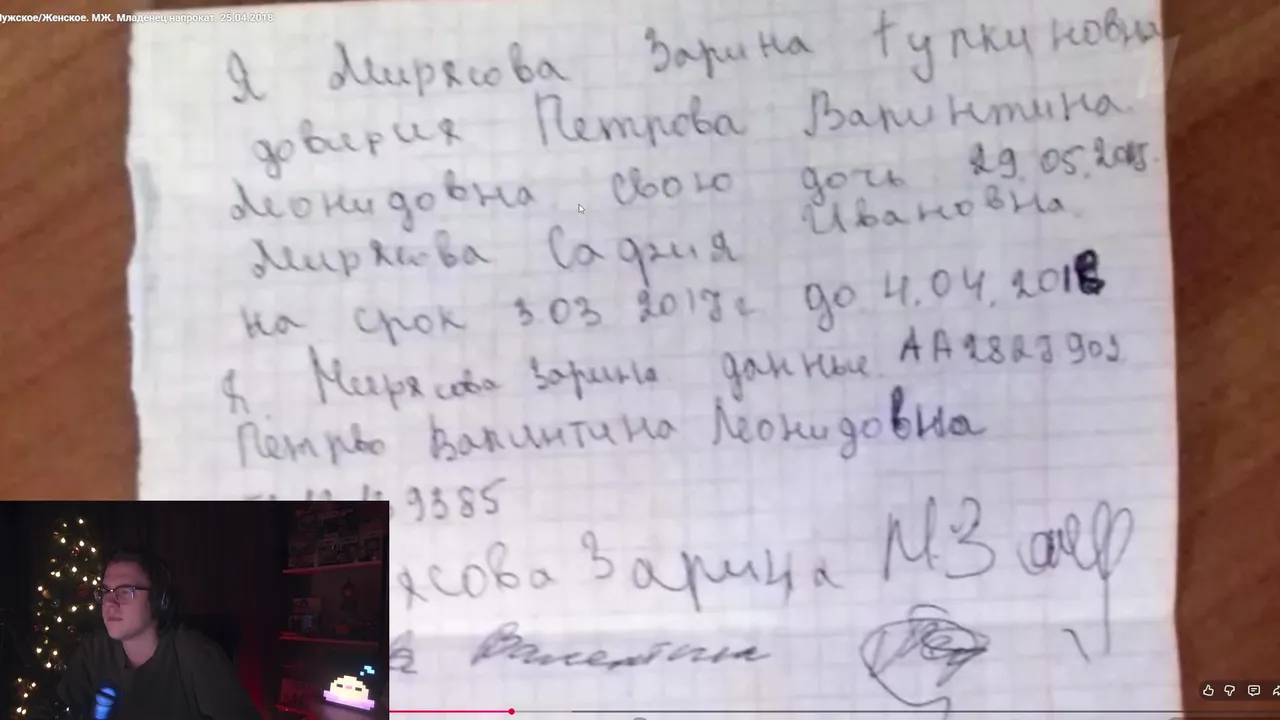 Мужское/Женское. МЖ. Младенец напрокат. 25.04.2018
Я Мирясова Зарина
доверия Петрова Валинтина
Леонидовна свою дочь 29.05.2015.
Мирясова Садгия Ивановна
на срок 3.03 2018г до 4.04.2018
Я. Мирясова Зарина данные АА2823902
Петрво Валинтина Леонидовна
9385
ясова Зарина МЗ
Валентина